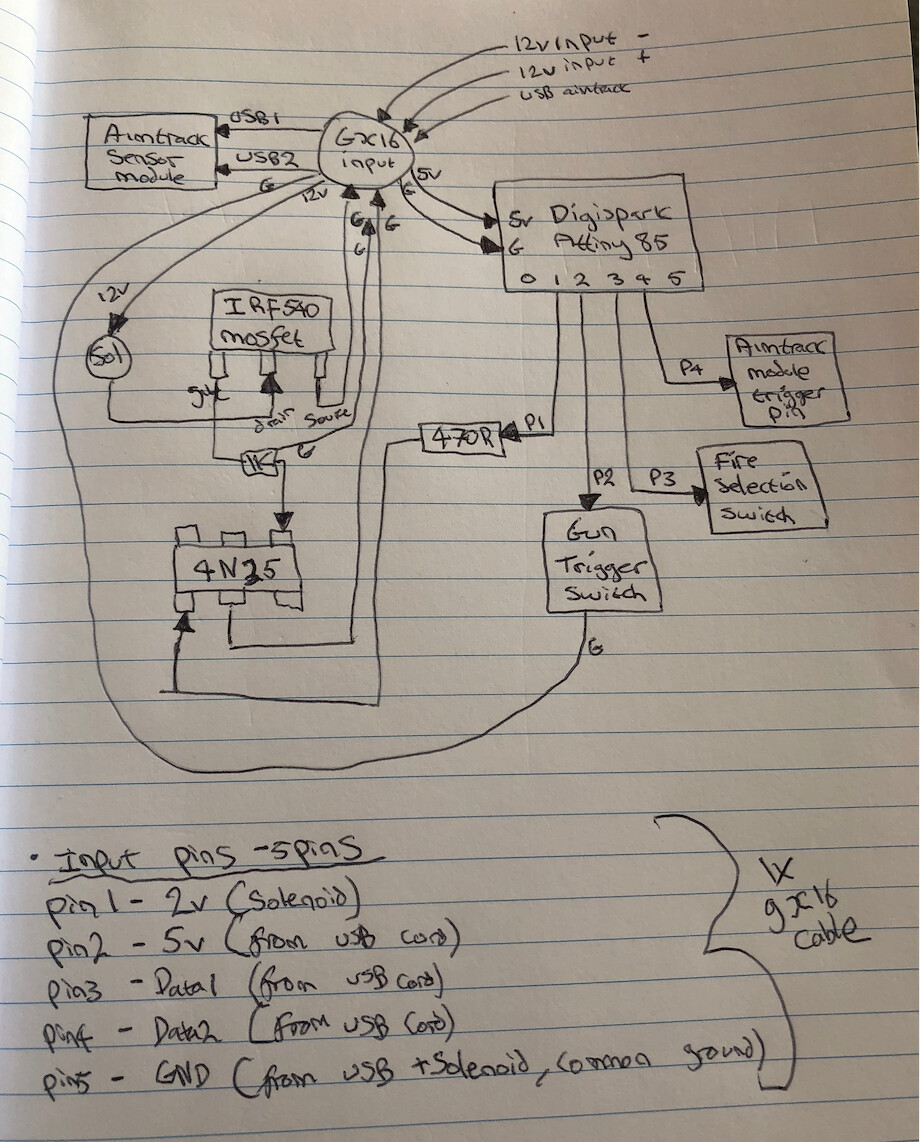 12v input -
12v input +
USB aimtrack
USB1
Aimtrack
Sensor
module
USB2
Gx16
input
G
12v
5v
G
G
G
G
5v Digispark
G Attiny 85
0 1 2 3 4 5
12v
Sol
IRF540
mosfet
gate
drain
Source
1K
G
470R
P1
P4
Aimtrack
module
trigger
pin
P2
P3
Fire
Selection
Switch
4N25
Gun
Trigger
Switch
G
• Input pins -5pins
pin1 - 2v (Solenoid)
pin2 - 5v (from USB cord)
pin3 - Data1 (from USB cord)
pin4 - Data2 (from USB cord)
pin5 - GND (from USB + Solenoid, common ground)
1x
gx16
cable